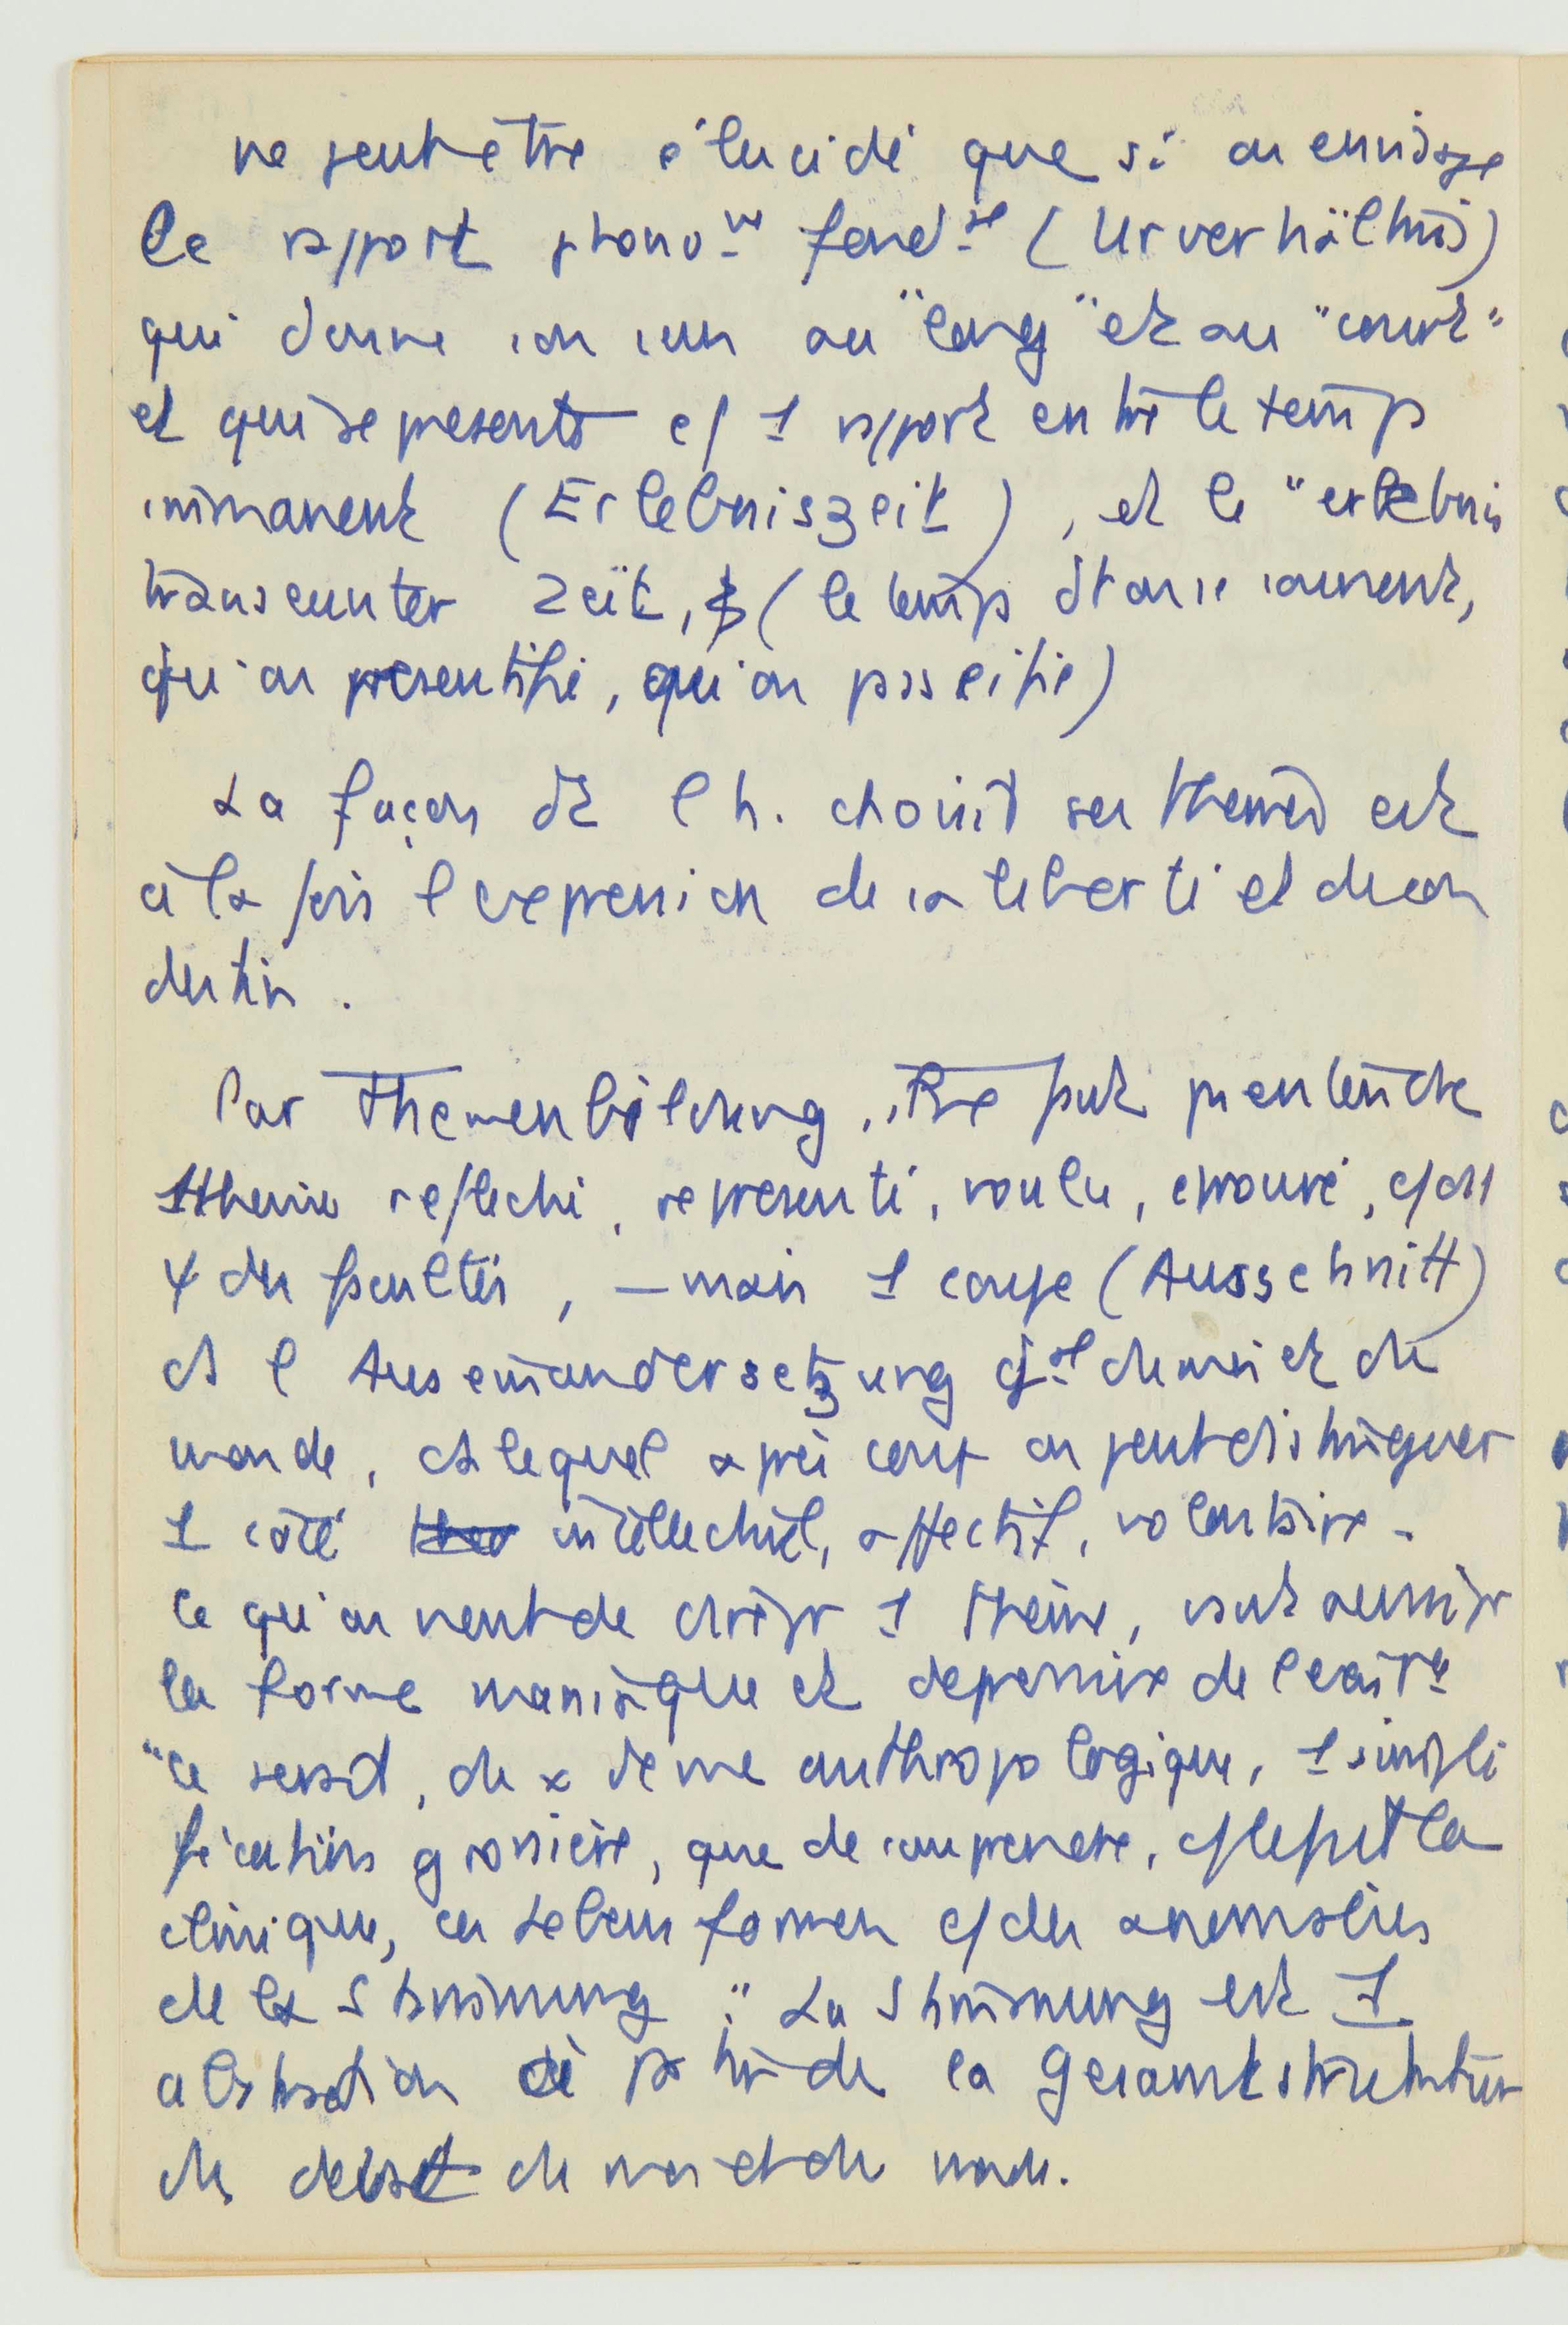 ne peut être élucidé que si on envisage
le rapport phénoᵐ fondᵃˡ (Urverhältnis)
qui donne son sens au "long" et au "court"
et qui se presente c/ 1 rapport entre le temps
immanent (Erlebniszeit), et le "erlebnis
transeunter Zeit, (le temps dt on se souvient,
qu'on presentifie, qu'on passeifie)
La façon dt l h. choisit ses themes est
à la fois l expression de sa liberté et de son
destin.
Par Themenbildung, il ne faut pas entendre
1 theme reflechi, represente, voulu, eprouvé, c/ ds
ψ des facultés, — mais 1 coupe (Ausschnitt)
ds l Auseinandersetzung du moi et du
monde, ds lequel après coup on peut distinguer
1 coté intellectuel, affectif, volontaire.
Ce qu'on vient de dire pr 1 thème, vaut aussi pr
la forme maniaque et depressive de l exist^ce
"Ce serait, du x de vue anthropologique, 1 simpli
fication grossière, que de comprendre, c/ le fait la
clinique, ces Lebensformen c/ des anomalies
de la Stimmung". La Stimmung est 1
abstraction à partir de la Gesamtstruktur
du débat du moi et du monde.